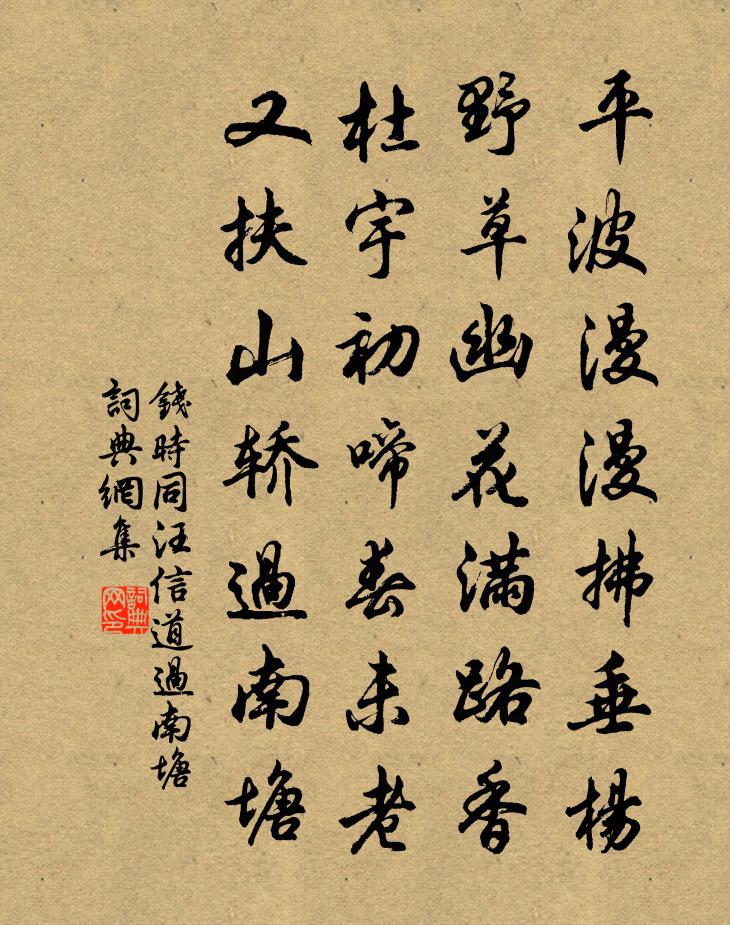 平波漫漫拂垂楊
野草幽花滿路香
杜宇初啼春未老
又扶山轿過南塘
錢時同汪信道過南塘
詞典網集
詞典网印